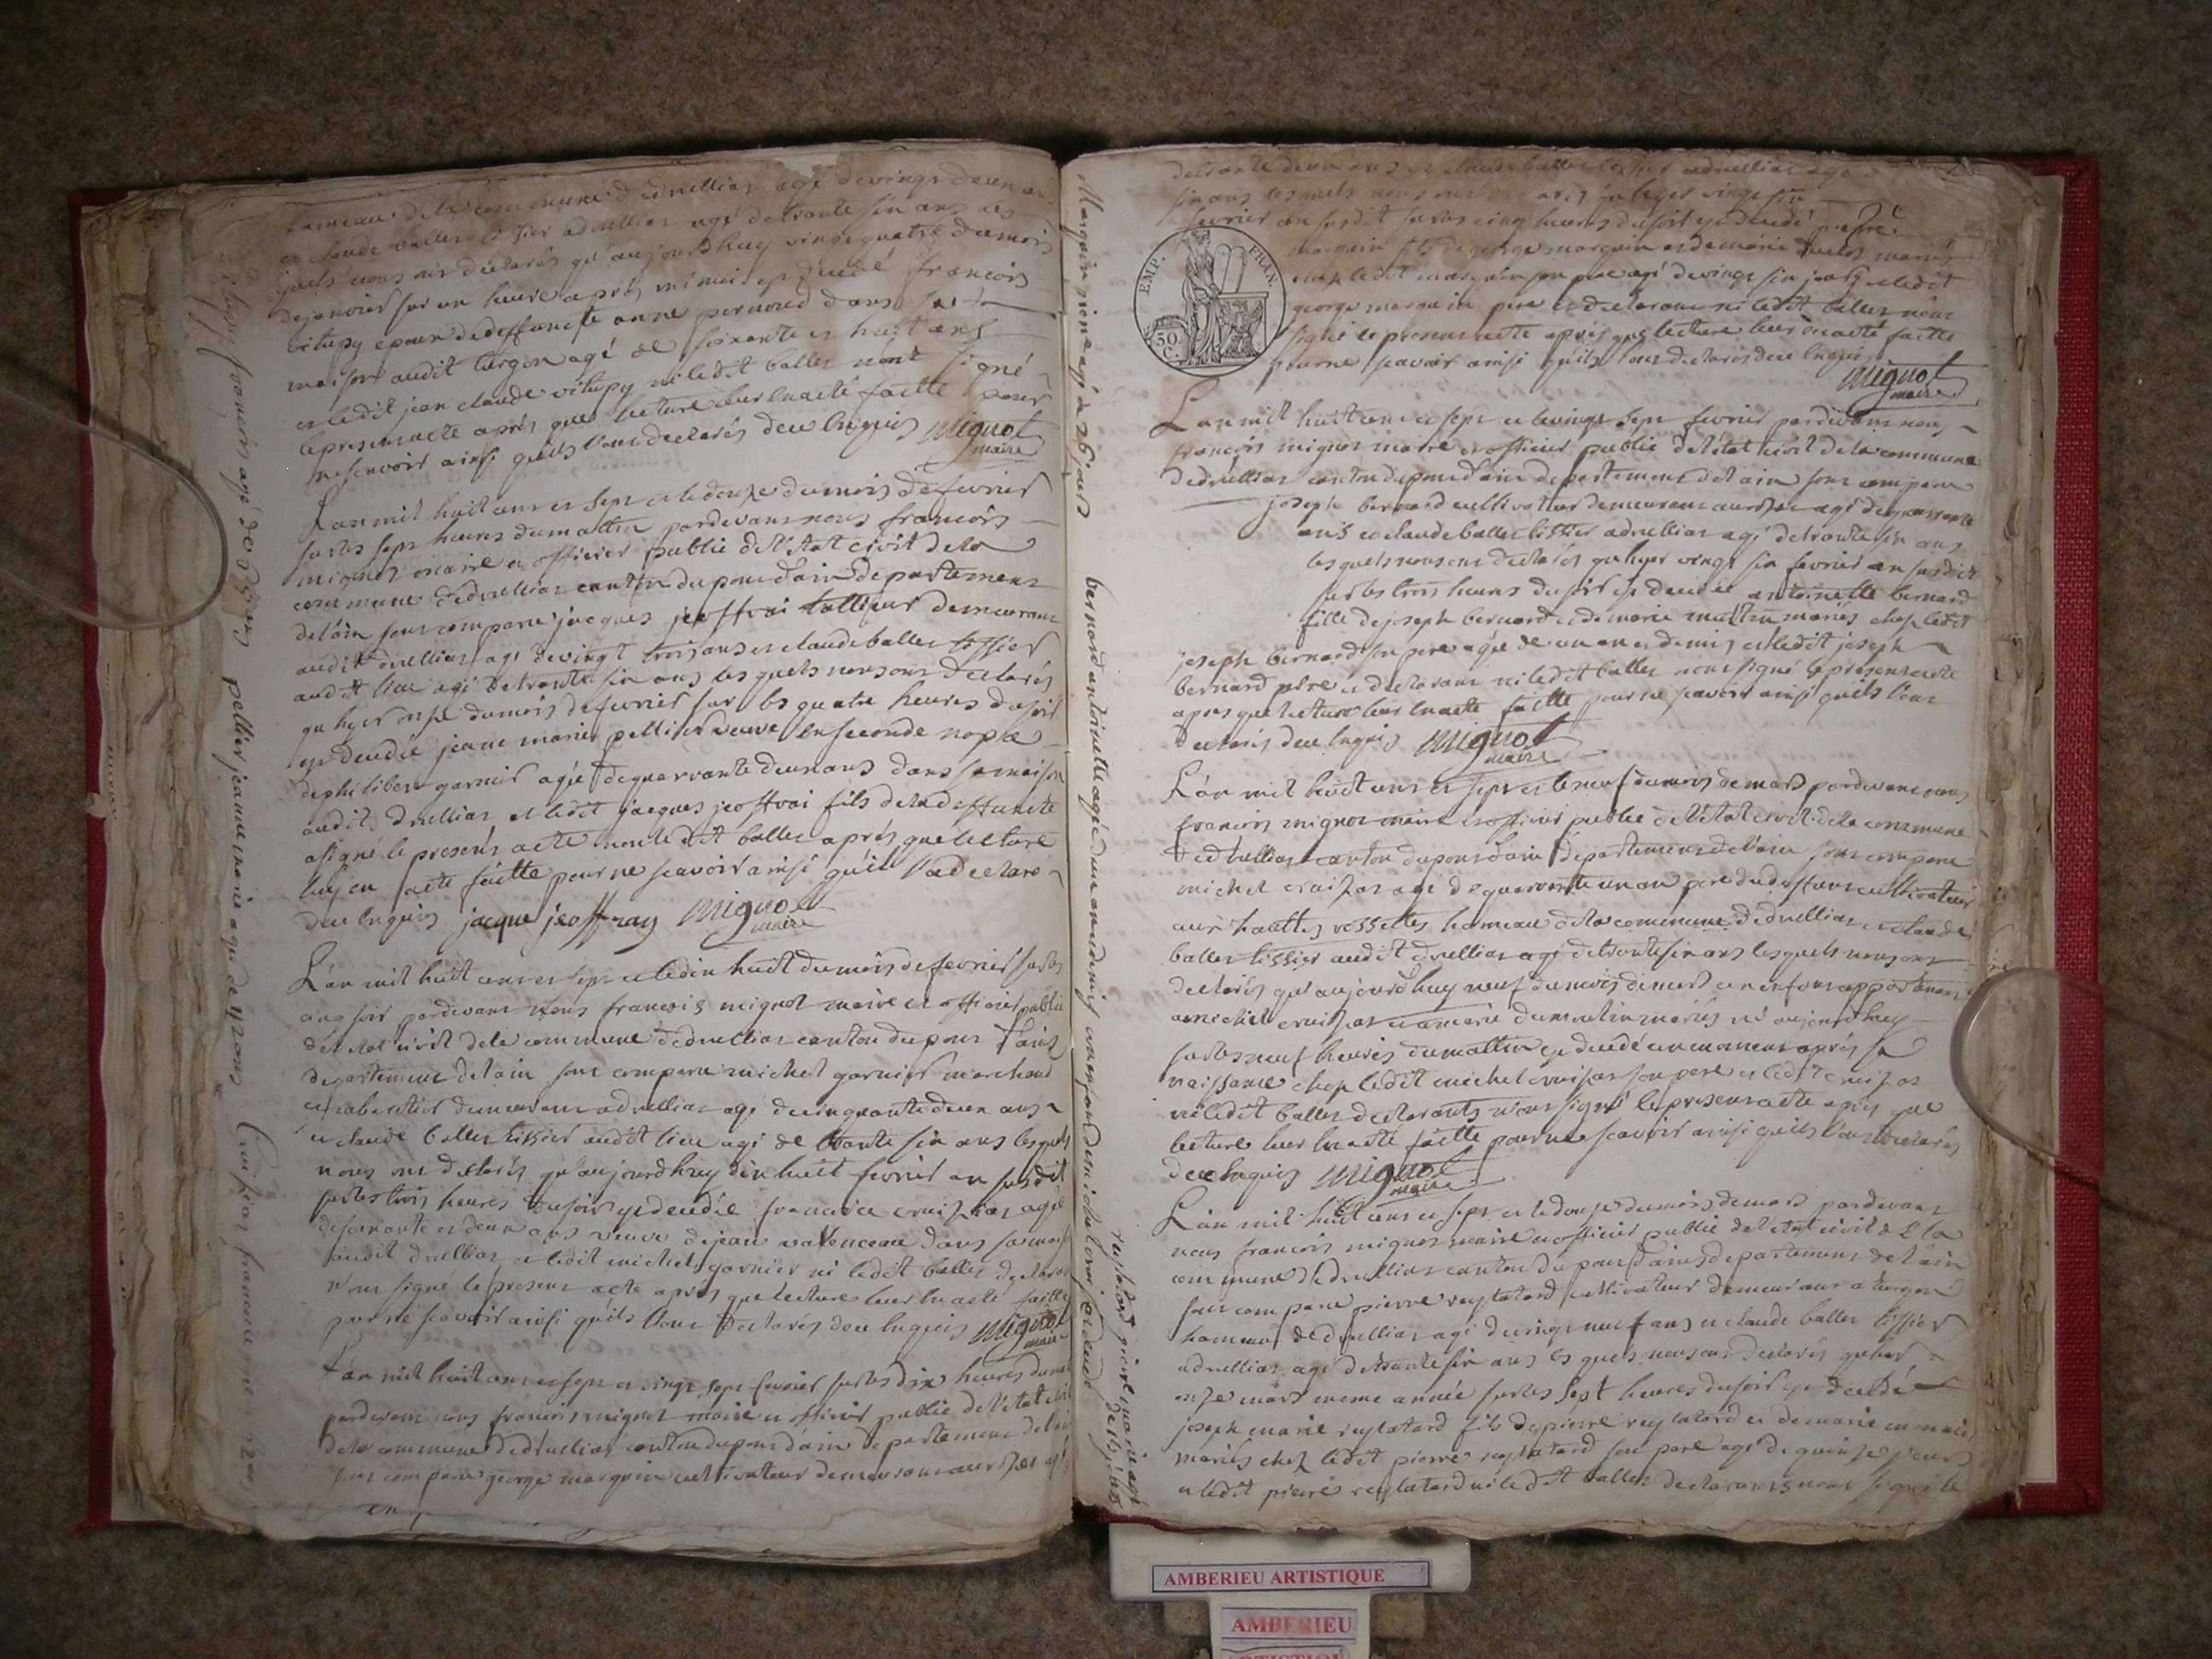 hameau de la commune d'druillias agé de vingt deux ans
et claude ballet tissier a druillias agé de trante six ans les
quels nous ont déclarés qu'aujourdhuy vingt quatre du mois
de janvier sur un heure après minuit est decedé françois
vitupy epoux de deffuncte anne pernoud dans sa
maison audit turgon agé de soixante et huit ans
et ledit jean claude vitupy ni ledit ballet n'ont signé
le present acte après que lecture leur en a eté faitte pour
ne scavoir ainsi quils l'ont declarés de ce enquis Mignot
maire
L'an mil huit cent et sept et le douze du mois de fevrier
sur les sept heures du mattin pardevant nous françois
mignot maire et officier public de l'état civil de la
commune d'druillias canton du pont d'ain departement
de l'ain sont comparu jacques jeoffrai tallieur demeurant
audit druillias agé de vingt trois ans et claude ballet tissier
audit lieu agé de trante six ans les quels nous ont declarés
qu hyer onze du mois de fevrier sur les quatre heures du soir
est decedée jeane marie pellier veuve en seconde nopce
de philibert garnier agée de quarrante deux ans dans sa maison
audit druillias et ledit jacques jeoffrai fils de la deffuncte
a signé le present acte non ledit ballet après que lecture
luy en a eté faitte pour ne scavoir ainsi qu'il l'a declaré
de ce enquis jacque jeoffray Mignot
maire
L'an mil huit cent et sept et le dix huit du mois de fevrier sur les
cinq soir pardevant nous françois mignot maire et officier public
de l'etat civil de la commune d'druillias canton du pont d'ain
departement de l'ain sont comparu michel garnier marchand
et cabaretier demeurant a druillias agé de cinquante deux ans
et claude ballet tissier audit lieu agé de trante six ans lesquels
nous ont declarés qu'aujourdhuy dix huit fevrier an susdit
sur les trois heures du soir est decedée francoise cruiziat agée
de soixante et deux ans veuve de jean valenceau dans sa maison
audit druillias et ledit michel garnier ni ledit ballet declarant
n'ont signé le present acte après que lecture leur en a eté faitte
pour ne scavoir ainsi quils l'ont declarés de ce enquis Mignot
maire
L'an mil huit cent et sept et vingt sept fevrier sur les dix heures du mattin
pardevant nous françois mignot maire et officier public de l'etat civil
de la commune d'druillias canton du pont d'ain departement de l'ain
sont comparu george marguin cultivateur demeurant
pellier jeanne marie agée de 42 ans
Cruiziat francoise
Marguin pierre agé de 26 jours
bernard antoinette agée d'un an et demis
ruylatard pierre marie agé de 15 jours
de trante deux ans et claude ballet tissier a druillias agé
six ans les quels nous ont declarés qu hyer vingt six
fevrier an susdit sur les cinq heures du soir est decedé pierre
marguin fils de george marguin et de marie mariés
chez ledit marguin son pere agé de vingt six jours et ledit
george marguin pere et declarant ni ledit ballet n'ont
signé le present acte après que lecture leur en a eté faitte
pour ne scavoir ainsi quils l'ont declarés de ce enquis
Mignot
maire
EMP. FRAN.
50 C.
L'an mil huit cent et sept et le vingt sept fevrier pardevant nous
françois mignot maire et officier public de l'état civil de la commune
d'druillias canton du pont d'ain departement de l'ain sont comparu
joseph bernard cultivateur demeurant agé de quarrante
ans et claude ballet tissier a druillias agé de trante six ans
les quels nous ont declarés qu hyer vingt six fevrier an susdit
sur les trois heures du soir est decedée antoinette bernard
fille de joseph bernard et de marie mariés chez ledit
joseph bernard son pere agée de un an et demis et ledit joseph
bernard pere et declarant ni ledit ballet n'ont signé le present acte
apres que lecture leur en a eté faitte pour ne scavoir ainsi quils l'ont
declarés de ce enquis Mignot
maire
L'an mil huit cent et sept et le neuf du mois de mars pardevant nous
françois mignot maire et officier public de l'état civil de la commune
d'druillias canton du pont d'ain departement de l'ain sont comparu
michel cruiziat agé de quarrante un an pere du deffunt cultivateur
aux hauttes rossettes hameau de la commune d'druillias et claude
ballet tissier audit druillias agé de trante six ans lesquels nous ont
declarés qu'aujourdhuy neuf du mois de mars un enfant appartenant
a michel cruiziat et a marie dumoulin mariés né aujourdhuy
sur les neuf heures du mattin est decedé un moment après sa
naissance chez ledit michel cruiziat son pere et ledit cruiziat
ni ledit ballet declarants n'ont signé le present acte après que
lecture leur en a eté faitte pour ne scavoir ainsi quils l'ont declarés
de ce enquis Mignot
maire
L'an mil huit cent et sept et le douze du mois de mars pardevant
nous françois mignot maire et officier public de l'etat civil de la
commune d'druillias canton du pont d'ain departement de l'ain
sont comparu pierre ruylatard cultivateur demeurant a turgon
hameau de druillias agé de vingt neuf ans et claude ballet tissier
a druillias agé de trante six ans les quels nous ont declarés qu hier
onze mars meme année sur les sept heures du soir est decedé
joseph marie ruylatard fils de pierre ruylatard et de marie
mariés chez ledit pierre ruylatard son pere agé de quinze jours
et ledit pierre ruylatard ni ledit ballet declarants n'ont signé le
AMBERIEU ARTISTIQUE
AMBERIEU
ARTISTIQUE